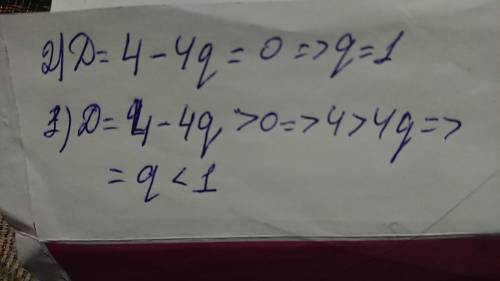 2) D = 4 - 4q = 0 => q = 1
1) D = 4 - 4q > 0 => 4 > 4q =>
= q < 1